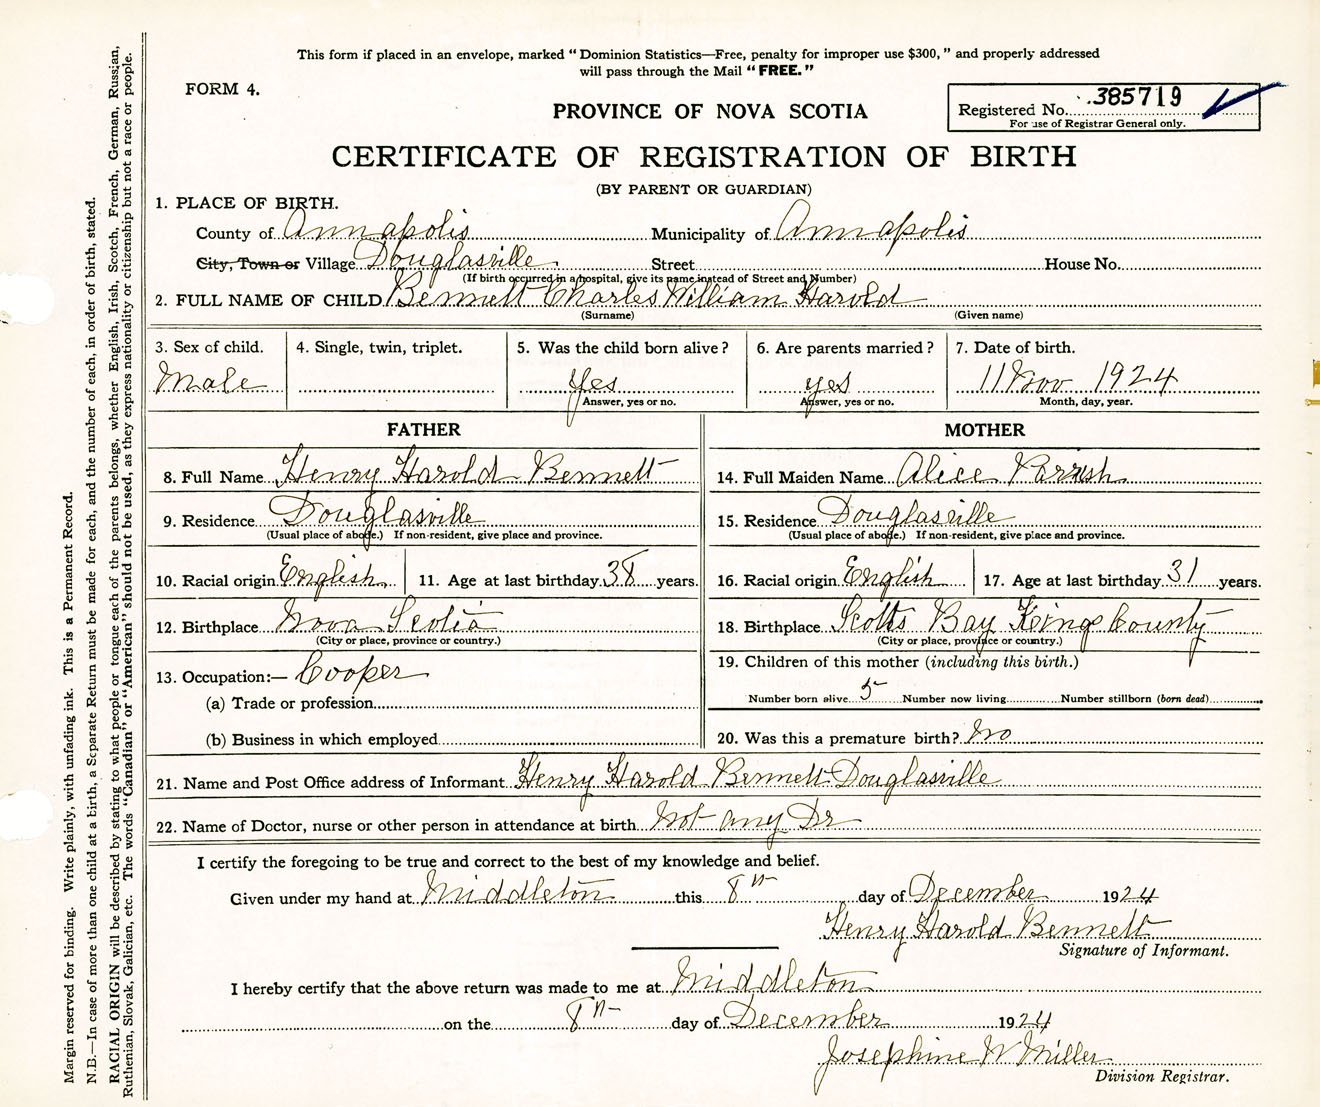 This form if placed in an envelope, marked “ Dominion Statistics—Free, penalty for improper use $300, ” and properly addressed
will pass through the Mail “ FREE. ”
FORM 4.
PROVINCE OF NOVA SCOTIA
Registered No. 385719
For use of Registrar General only.
CERTIFICATE OF REGISTRATION OF BIRTH
(BY PARENT OR GUARDIAN)
1. PLACE OF BIRTH.
County of Annapolis Municipality of Annapolis
City, Town or Village Douglasville Street House No.
(If birth occurred in a hospital, give its name instead of Street and Number)
2. FULL NAME OF CHILD Bennett Charles William Harold
(Surname) (Given name)
3. Sex of child. 4. Single, twin, triplet. 5. Was the child born alive? 6. Are parents married? 7. Date of birth.
Male Yes yes 11 Nov 1924
Answer, yes or no. Answer, yes or no. Month, day, year.
FATHER MOTHER
8. Full Name Henry Harold Bennett 14. Full Maiden Name Alice Parrish
9. Residence Douglasville 15. Residence Douglasville
(Usual place of abode.) If non-resident, give place and province. (Usual place of abode.) If non-resident, give place and province.
10. Racial origin English 11. Age at last birthday 38 years. 16. Racial origin English 17. Age at last birthday 31 years.
12. Birthplace Nova Scotia 18. Birthplace Scotts Bay Kings County
(City or place, province or country.) (City or place, province or country.)
13. Occupation:— Cooper 19. Children of this mother (including this birth.)
(a) Trade or profession Number born alive 5 Number now living Number stillborn (born dead)
(b) Business in which employed 20. Was this a premature birth? No
21. Name and Post Office address of Informant Henry Harold Bennett Douglasville
22. Name of Doctor, nurse or other person in attendance at birth Not any Dr
I certify the foregoing to be true and correct to the best of my knowledge and belief.
Given under my hand at Middleton this 8th day of December 1924
Henry Harold Bennett
Signature of Informant.
I hereby certify that the above return was made to me at Middleton
on the 8th day of December 1924
Josephine W Miller
Division Registrar.
Margin reserved for binding. Write plainly, with unfading ink. This is a Permanent Record.
N.B.—In case of more than one child at a birth, a Separate Return must be made for each, and the number of each, in order of birth, stated.
RACIAL ORIGIN will be described by stating to what people or tongue each of the parents belongs, whether English, Irish, Scotch, French, German, Russian,
Ruthenian, Slovak, Galician, etc. The words “Canadian” or “American” should not be used, as they express nationality or citizenship but not a race or people.